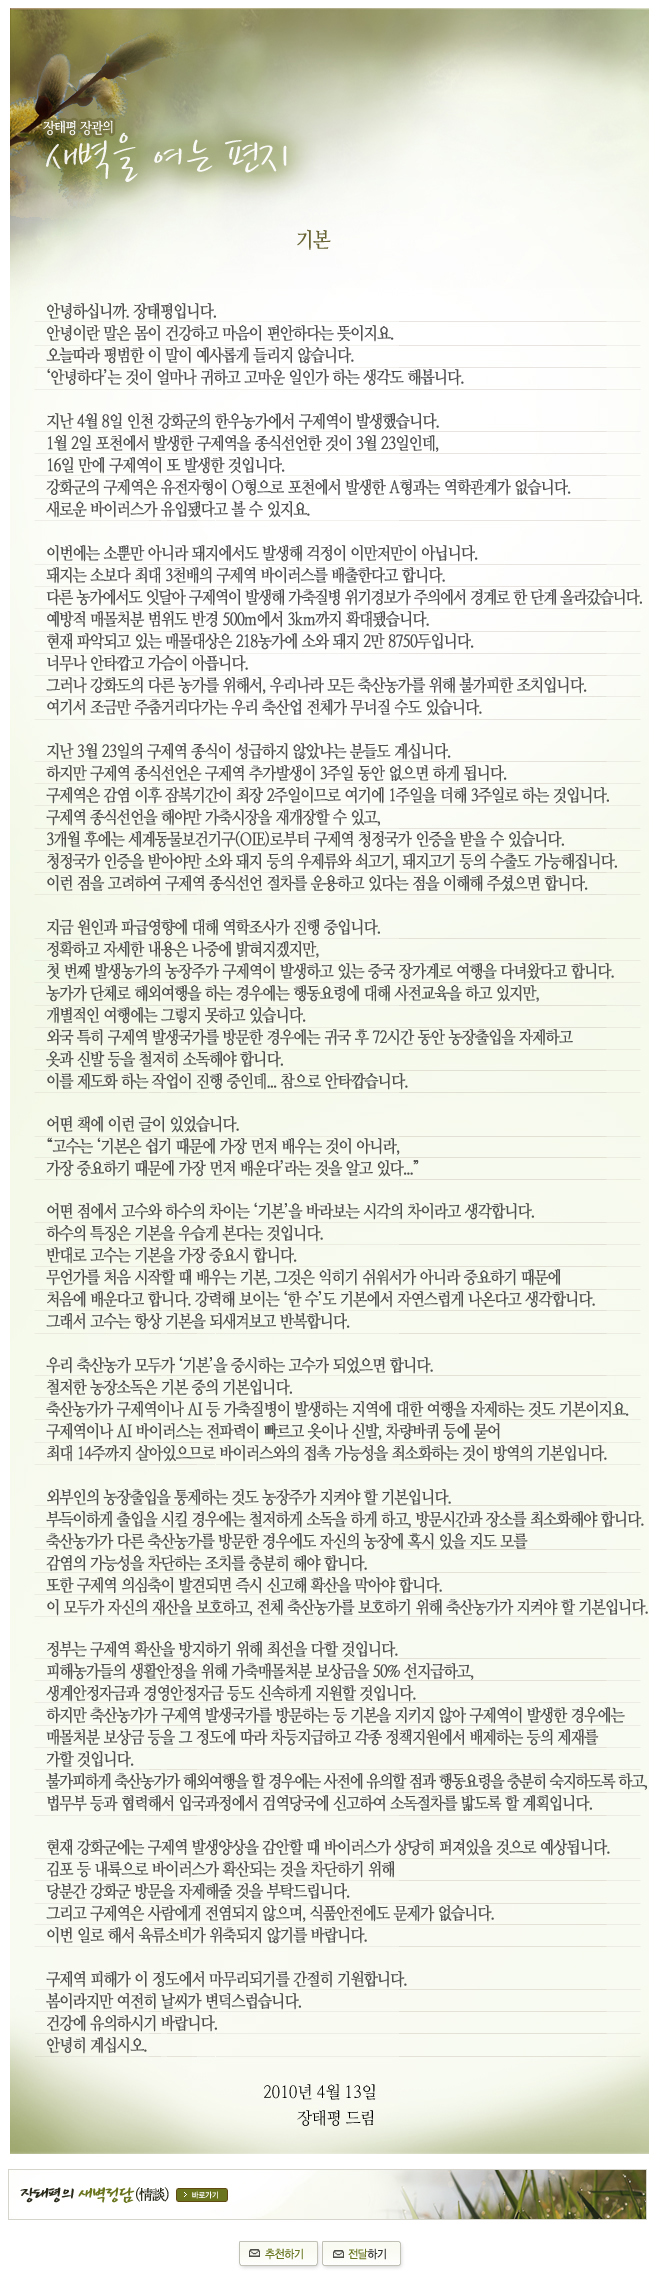 장태평 장관의
새벽을 여는 편지
기본
안녕하십니까. 장태평입니다.
안녕이란 말은 몸이 건강하고 마음이 편안하다는 뜻이지요.
오늘따라 평범한 이 말이 예사롭게 들리지 않습니다.
‘안녕하다’는 것이 얼마나 귀하고 고마운 일인가 하는 생각도 해봅니다.
지난 4월 8일 인천 강화군의 한우농가에서 구제역이 발생했습니다.
1월 2일 포천에서 발생한 구제역을 종식선언한 것이 3월 23일인데,
16일 만에 구제역이 또 발생한 것입니다.
강화군의 구제역은 유전자형이 O형으로 포천에서 발생한 A형과는 역학관계가 없습니다.
새로운 바이러스가 유입됐다고 볼 수 있지요.
이번에는 소뿐만 아니라 돼지에서도 발생해 걱정이 이만저만이 아닙니다.
돼지는 소보다 최대 3천배의 구제역 바이러스를 배출한다고 합니다.
다른 농가에서도 잇달아 구제역이 발생해 가축질병 위기경보가 주의에서 경계로 한 단계 올라갔습니다.
예방적 매몰처분 범위도 반경 500m에서 3km까지 확대됐습니다.
현재 파악되고 있는 매몰대상은 218농가에 소와 돼지 2만 8750두입니다.
너무나 안타깝고 가슴이 아픕니다.
그러나 강화도의 다른 농가를 위해서, 우리나라 모든 축산농가를 위해 불가피한 조치입니다.
여기서 조금만 주춤거리다가는 우리 축산업 전체가 무너질 수도 있습니다.
지난 3월 23일의 구제역 종식이 성급하지 않았냐는 분들도 계십니다.
하지만 구제역 종식선언은 구제역 추가발생이 3주일 동안 없으면 하게 됩니다.
구제역은 감염 이후 잠복기간이 최장 2주일이므로 여기에 1주일을 더해 3주일로 하는 것입니다.
구제역 종식선언을 해야만 가축시장을 재개장할 수 있고,
3개월 후에는 세계동물보건기구(OIE)로부터 구제역 청정국가 인증을 받을 수 있습니다.
청정국가 인증을 받아야만 소와 돼지 등의 우제류와 쇠고기, 돼지고기 등의 수출도 가능해집니다.
이런 점을 고려하여 구제역 종식선언 절차를 운용하고 있다는 점을 이해해 주셨으면 합니다.
지금 원인과 파급영향에 대해 역학조사가 진행 중입니다.
정확하고 자세한 내용은 나중에 밝혀지겠지만,
첫 번째 발생농가의 농장주가 구제역이 발생하고 있는 중국 장가계로 여행을 다녀왔다고 합니다.
농가가 단체로 해외여행을 하는 경우에는 행동요령에 대해 사전교육을 하고 있지만,
개별적인 여행에는 그렇지 못하고 있습니다.
외국 특히 구제역 발생국가를 방문한 경우에는 귀국 후 72시간 동안 농장출입을 자제하고
옷과 신발 등을 철저히 소독해야 합니다.
이를 제도화 하는 작업이 진행 중인데... 참으로 안타깝습니다.
어떤 책에 이런 글이 있었습니다.
“고수는 ‘기본은 쉽기 때문에 가장 먼저 배우는 것이 아니라,
가장 중요하기 때문에 가장 먼저 배운다’라는 것을 알고 있다...”
어떤 점에서 고수와 하수의 차이는 ‘기본’을 바라보는 시각의 차이라고 생각합니다.
하수의 특징은 기본을 우습게 본다는 것입니다.
반대로 고수는 기본을 가장 중요시 합니다.
무언가를 처음 시작할 때 배우는 기본, 그것은 익히기 쉬워서가 아니라 중요하기 때문에
처음에 배운다고 합니다. 강력해 보이는 ‘한 수’도 기본에서 자연스럽게 나온다고 생각합니다.
그래서 고수는 항상 기본을 되새겨보고 반복합니다.
우리 축산농가 모두가 ‘기본’을 중시하는 고수가 되었으면 합니다.
철저한 농장소독은 기본 중의 기본입니다.
축산농가가 구제역이나 AI 등 가축질병이 발생하는 지역에 대한 여행을 자제하는 것도 기본이지요.
구제역이나 AI 바이러스는 전파력이 빠르고 옷이나 신발, 차량바퀴 등에 묻어
최대 14주까지 살아있으므로 바이러스와의 접촉 가능성을 최소화하는 것이 방역의 기본입니다.
외부인의 농장출입을 통제하는 것도 농장주가 지켜야 할 기본입니다.
부득이하게 출입을 시킬 경우에는 철저하게 소독을 하게 하고, 방문시간과 장소를 최소화해야 합니다.
축산농가가 다른 축산농가를 방문한 경우에도 자신의 농장에 혹시 있을 지도 모를
감염의 가능성을 차단하는 조치를 충분히 해야 합니다.
또한 구제역 의심축이 발견되면 즉시 신고해 확산을 막아야 합니다.
이 모두가 자신의 재산을 보호하고, 전체 축산농가를 보호하기 위해 축산농가가 지켜야 할 기본입니다.
정부는 구제역 확산을 방지하기 위해 최선을 다할 것입니다.
피해농가들의 생활안정을 위해 가축매몰처분 보상금을 50% 선지급하고,
생계안정자금과 경영안정자금 등도 신속하게 지원할 것입니다.
하지만 축산농가가 구제역 발생국가를 방문하는 등 기본을 지키지 않아 구제역이 발생한 경우에는
매몰처분 보상금 등을 그 정도에 따라 차등지급하고 각종 정책지원에서 배제하는 등의 제재를
가할 것입니다.
불가피하게 축산농가가 해외여행을 할 경우에는 사전에 유의할 점과 행동요령을 충분히 숙지하도록 하고,
법무부 등과 협력해서 입국과정에서 검역당국에 신고하여 소독절차를 밟도록 할 계획입니다.
현재 강화군에는 구제역 발생양상을 감안할 때 바이러스가 상당히 퍼져있을 것으로 예상됩니다.
김포 등 내륙으로 바이러스가 확산되는 것을 차단하기 위해
당분간 강화군 방문을 자제해줄 것을 부탁드립니다.
그리고 구제역은 사람에게 전염되지 않으며, 식품안전에도 문제가 없습니다.
이번 일로 해서 육류소비가 위축되지 않기를 바랍니다.
구제역 피해가 이 정도에서 마무리되기를 간절히 기원합니다.
봄이라지만 여전히 날씨가 변덕스럽습니다.
건강에 유의하시기 바랍니다.
안녕히 계십시오.
2010년 4월 13일
장태평 드림
장태평의 새벽정담(情談) > 바로가기
추천하기 전달하기